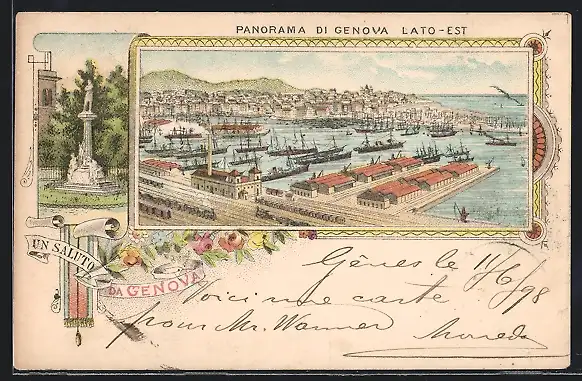 PANORAMA DI GENOVA LATO-EST
UN SALUTO
DA GENOVA
Gênes le 11/6/98
Voici une carte
pour Mr. Wanner